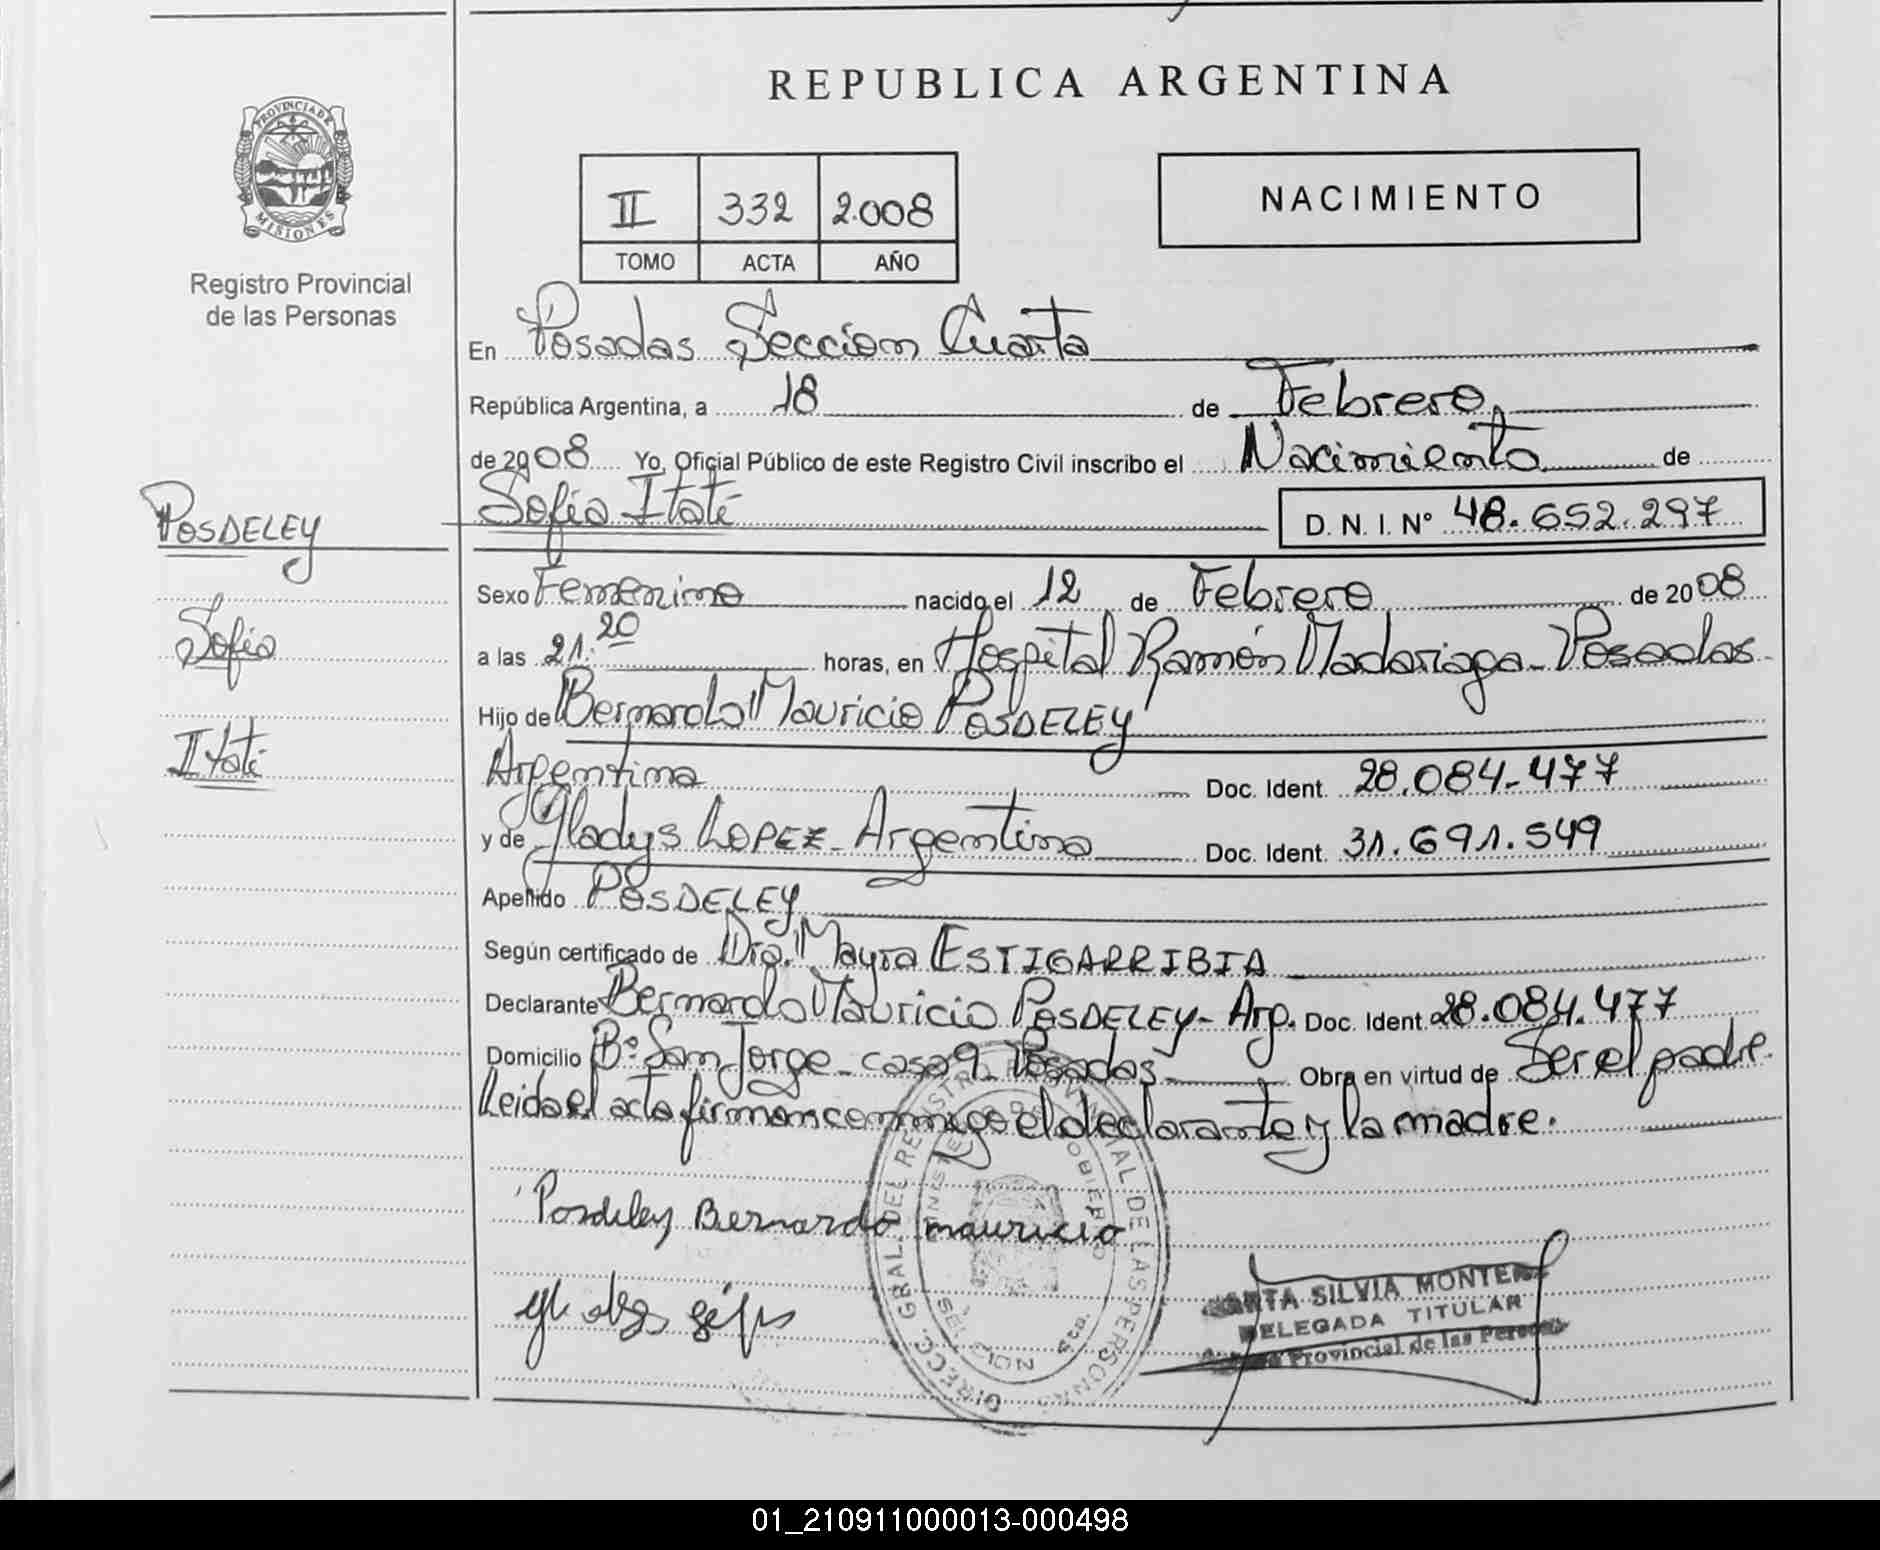 REPUBLICA ARGENTINA
PROVINCIA DE
MISIONES
Registro Provincial
de las Personas
II 332 2.008
TOMO ACTA AÑO
NACIMIENTO
En Posadas Seccion Cuarta
República Argentina, a 18 de Febrero,
de 2008 Yo, Oficial Público de este Registro Civil inscribo el Nacimiento de
Sofia Itatí D. N. I. N° 48.652.297
POSDELEY
Sofia
Itatí
Sexo Femenino nacido el 12 de Febrero de 2008
a las 21.20 horas, en Hospital Ramón Madariaga - Posadas -
Hijo de Bernardo Mauricio POSDELEY
Argentina Doc. Ident. 28.084.477
y de Gladys LOPEZ - Argentina Doc. Ident. 31.691.549
Apellido POSDELEY
Según certificado de Dra. Mayra ESTIGARRIBIA
Declarante Bernardo Mauricio POSDELEY - Arg. Doc. Ident. 28.084.477
Domicilio B° San Jorge - casa 9 - Posadas - Obra en virtud de Ser el padre.
Leida el acta firman conmigo el declarante y la madre.
Posdeley Bernardo mauricio
DIRECC. GRAL. DEL REGISTRO PROVINCIAL DE LAS PERSONAS
SILVIA MONTE
DELEGADA TITULAR
Provincial de las Personas
01_210911000013-000498